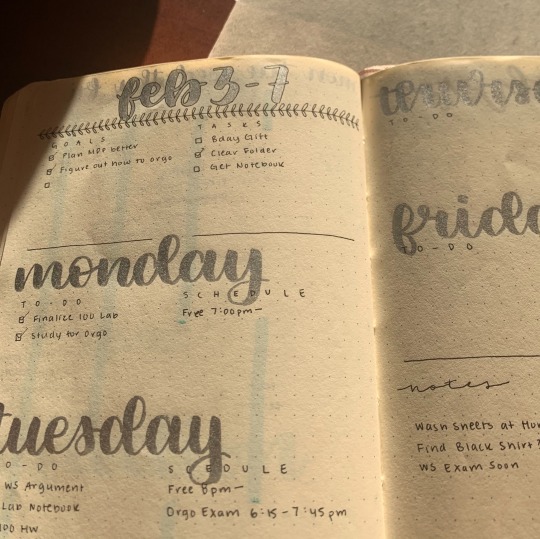 feb 3-7
GOALS
Plan MPF better
Figure out how to orgo
TASKS
Bday Gift
Clear Folder
Get Notebook
monday
TO-DO
Finalize 100 Lab
Study for Orgo
SCHEDULE
Free 7:00pm-
tuesday
O-DO
WS Argument
Lab Notebook
100 HW
SCHEDULE
Free 8pm-
Orgo Exam 6:15-7:45pm
TO-DO
frida
TO-DO
notes
Wash Sheets at
Find Black Shirt?
WS Exam Soon